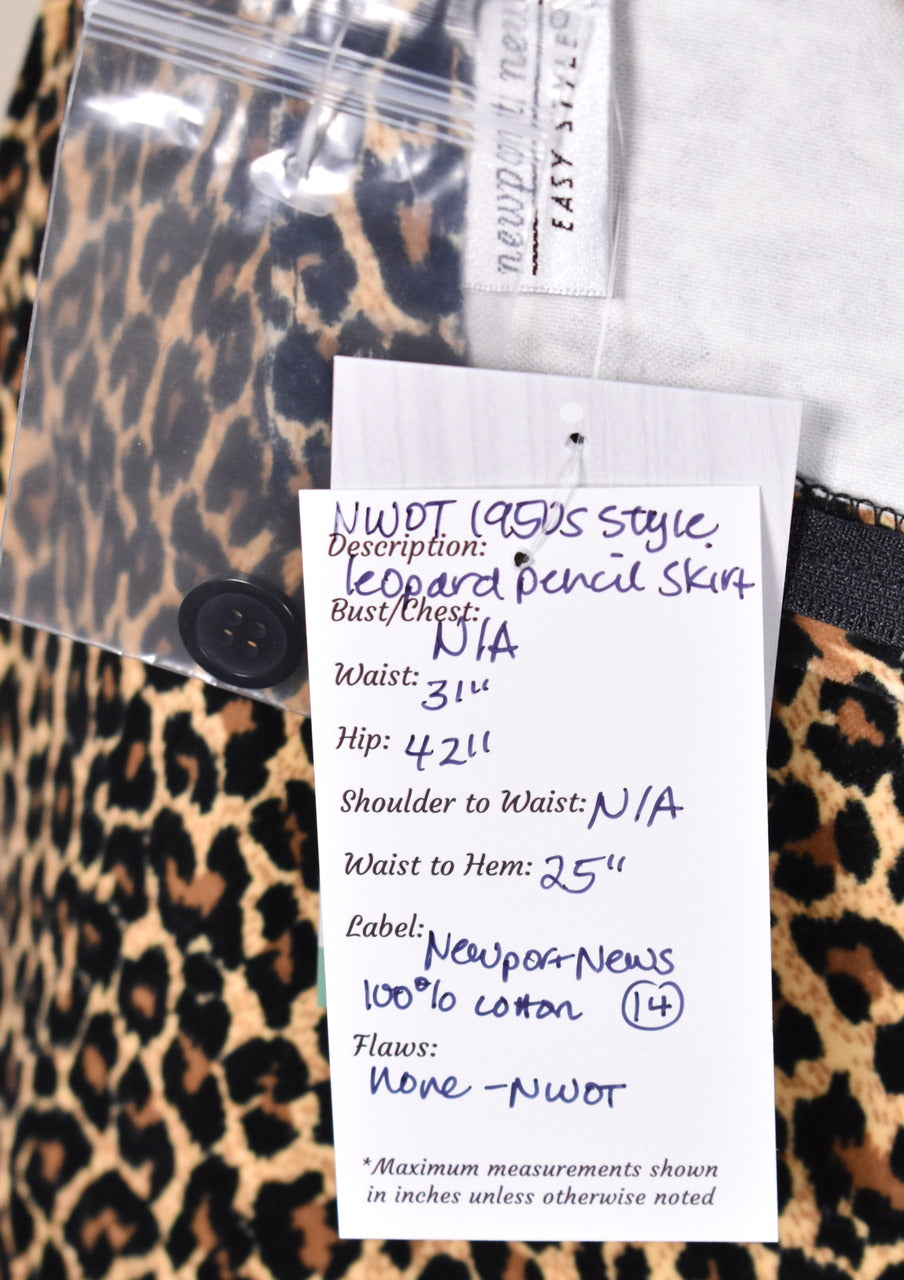 newport new
EASY STYLE
NWOT 1950s Style
Description:
leopard pencil skirt
Bust/Chest:
N/A
Waist: 31"
Hip: 42"
Shoulder to Waist: N/A
Waist to Hem: 25"
Label: Newport News
100% cotton 14
Flaws:
None - NWOT
*Maximum measurements shown
in inches unless otherwise noted